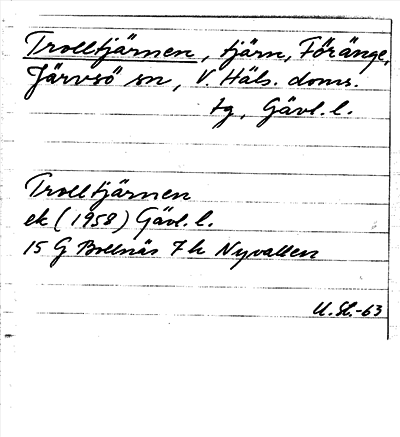 Trolltjärnen, tjärn, Föränge,
Järvsö sn, V. Häls. doms.
tg, Gävl. l.
Trolltjärnen
ek (1958) Gävl. l.
15 G Bollnäs 7 h Nyvallen
U. Sl.-63